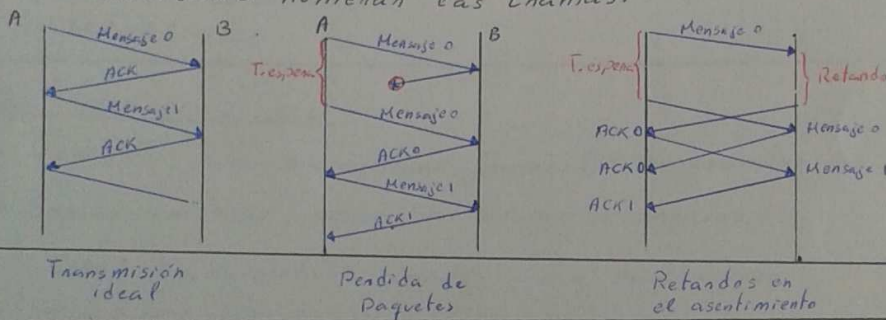 A
B
Mensaje 0
ACK
Mensaje 1
ACK
Transmisión
ideal
A
B
Mensaje 0
T. espera
Mensaje 0
ACK 0
Mensaje 1
ACK 1
Perdida de
Paquetes
Mensaje 0
T. espera
Retardo
ACK 0
Mensaje 0
ACK 0
Mensaje 1
ACK 1
Retardos en
el asentimiento